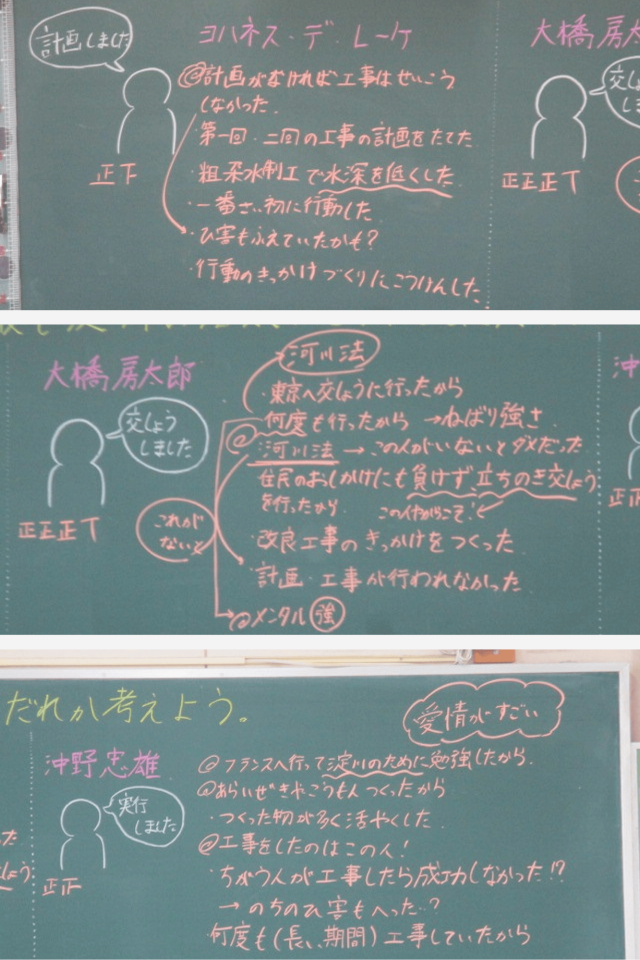 計画しました
ヨハネス・デ・レーケ
大橋房太
@計画がなければ工事はせいこう
しなかった
・第一回・二回の工事の計画をたてた
・粗朶水制工で水深を低くした
・一番さい初に行動した
・ひ害もふえていたかも?
・行動のきっかけづくりにこうけんした
正下
交しょ
しま
正正正丅
大橋房太郎
河川法
・東京へ交しょうに行ったから
何度も行ったから→ねばり強さ
@河川法→この人がいないとダメだった
住民のおしかけにも負けず立ちのき交しょう
を行ったから
この人だからこそ!
・改良工事のきっかけをつくった
・計画・工事が行われなかった
→@メンタル強
交しょう
しました
正正正丅
これが
ないと
沖
だれか考えよう。
愛情がすごい
沖野忠雄
実行
しました
正正
@フランスへ行って淀川のために勉強したから
@あらいぜきやこうもんつくったから
・つくった物が多く活やくした
@工事をしたのはこの人!
ちがう人が工事したら成功しなかった!?
→のちのひ害もへった?
何度も(長い期間)工事していたから